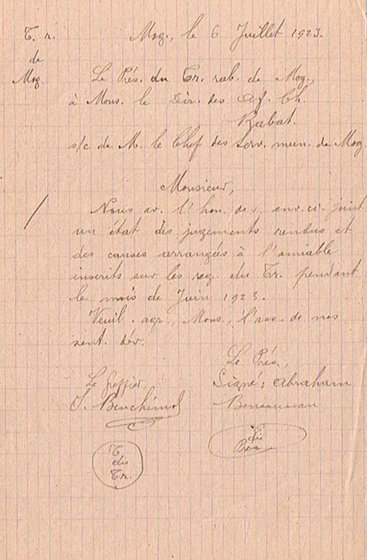 T. r.
de
Mog.
Mog., le 6 Juillet 1923.
Le Prés. du Tr. rab. de Mog.,
à Mons. le Dir. des Aff. Ch.
Rabat.
s/c de M. le Chef des Serv. mun. de Mog
Monsieur,
Nous av. l'hon. de v. env. ci-joint
un état des jugements rendus et
des causes arrangées à l'amiable
inscrits sur les reg. du Tr. pendant
le mois de Juin 1923.
Veuil. agr., Mons., l'ass. de nos
sent. dév.
Le Prés.,
Le greffier
Signé: Abraham
S. Benchimol
Benoussan
T.
du
Tr.
du
Prés